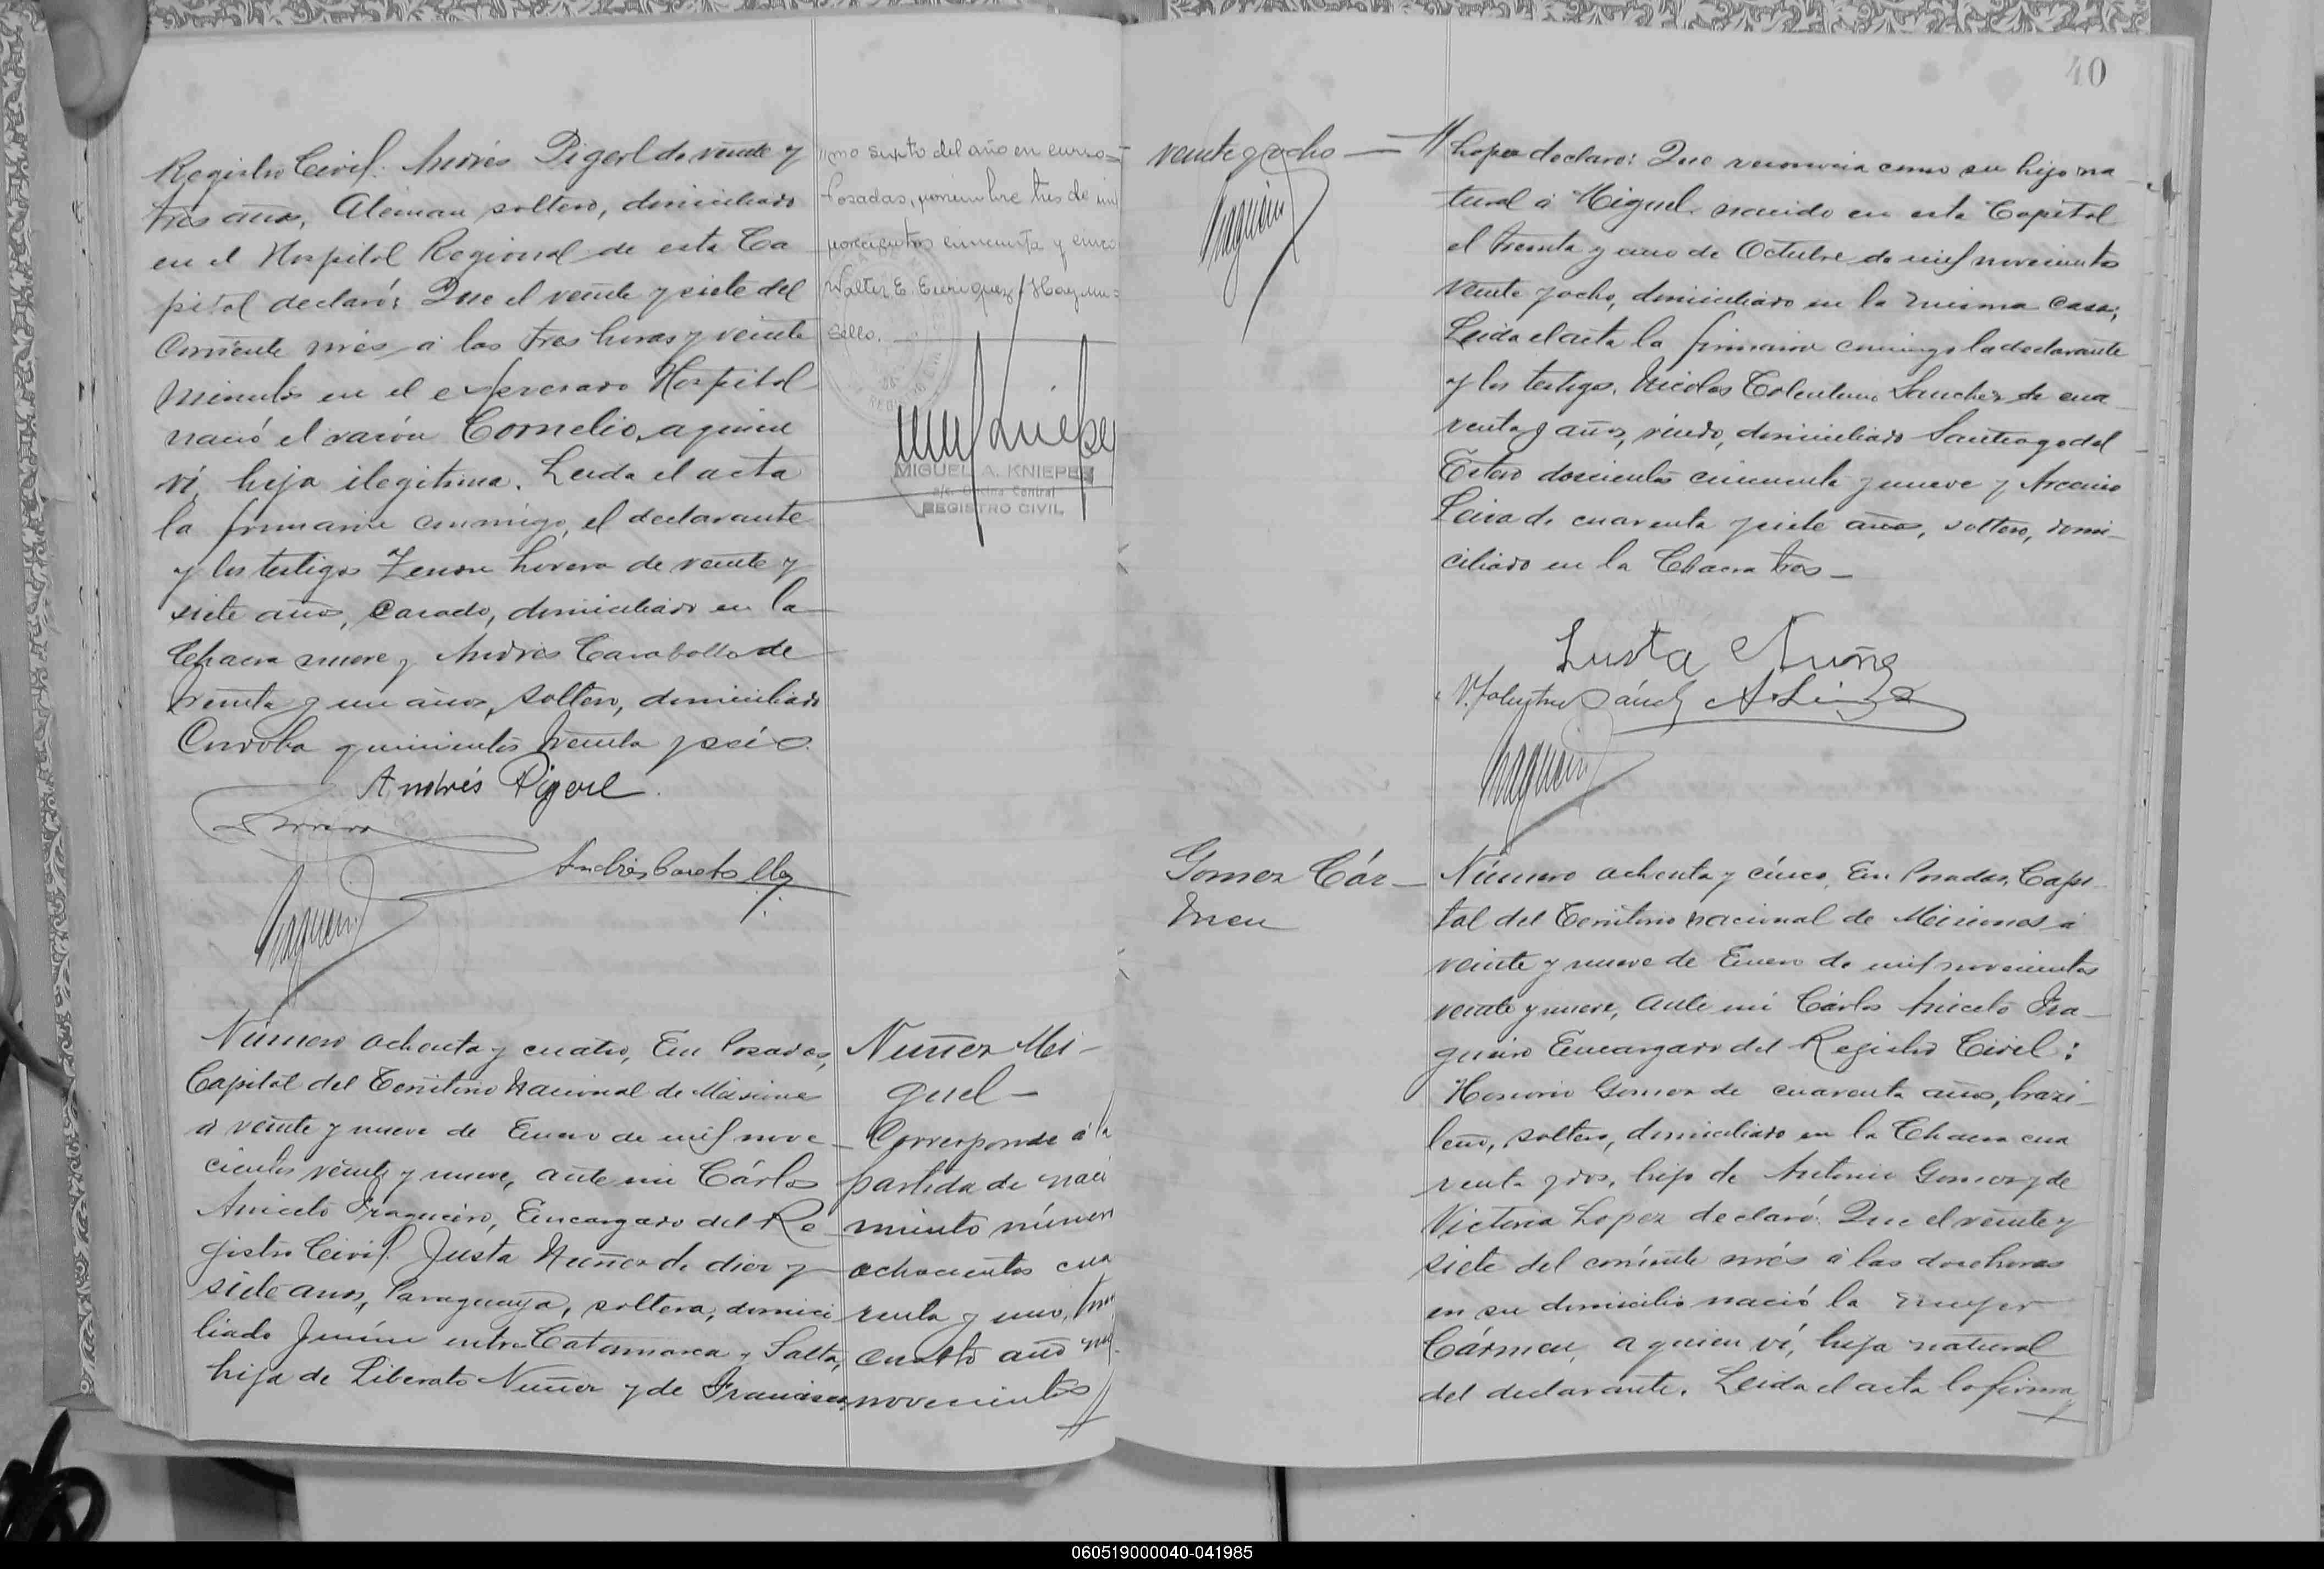 Registro Civil: Andrés Pigerl de veinte y
tres años, Aleman soltero, domiciliado
en el Hospital Regional de esta Ca
pital declaró: Que el veinte y siete del
corriente més a las tres horas y veinte
minutos en el expresado Hospital
nació el varón Cornelio, a quien
ví, hijo ilegitimo. Leida el acta
la firmaron conmigo, el declarante
y los testigos Zenon Lovera de veinte y
siete años, casado, domiciliado en la
Chacra nueve y Andrés Caraballo de
treinta y un años, soltero, domiciliado
Cordoba quinientos treinta y seis.
Andrés Pigerl
Número ochenta y cuatro, En Posadas,
Capital del Territorio Nacional de Misiones
a veinte y nueve de Enero de mil nove
cientos veinte y nueve, ante mi Cárlos
Aniceto Fragueiro, Encargado del Re
gistro Civil: Justa Nuñez de diez y
siete años, Paraguaya, soltera, domici
liada Junín entre Catamarca y Salta,
hija de Liberato Nuñez y de Francisca
mo sexto del año en curso=
Posadas, noviembre tres de mil
novecientos cincuenta y cinco
Walter E. Enriquez/Hay un=
sello.
MIGUEL A. KNIEPER
a/c. Oficina Central
REGISTRO CIVIL
Nuñez Mi-
guel-
Corresponde á la
partida de naci
miento número
ochocientos cua
renta y uno, tomo
cuarto año mil
novecientos
40
veinte y ocho
// Lopez declaró: Que reconocia como su hijo na
tural á Miguel, nacido en esta Capital
el treinta y uno de Octubre de mil novecientos
veinte y ocho, domiciliado en la misma casa;
Leida el acta la firmaron conmigo la declarante
y los testigos. Nicolas Tolentino Sanchez de cua
renta años, viudo, domiciliado Santiago del
Estero doscientos cincuenta y nueve y Arcenio
Leiva de cuarenta y siete años, soltero, domi-
ciliado en la Chacra tres-
Justa Nuñe
Gomez Cár-
men
Número ochenta y cinco, En Posadas, Capi-
tal del Territorio nacional de Misiones á
veinte y nueve de Enero de mil novecientos
veinte y nueve, ante mi Cárlos Aniceto Fra-
gueiro Encargado del Registro Civil:
Honorio Gomez de cuarenta años, brazi-
lero, soltero, domiciliado en la Chacra cua
renta y dos, hijo de Antonio Gomez y de
Victoria Lopez declaró: Que el veinte y
siete del corriente més á las doce horas
en su domicilio nació la mujer
Cármen, a quien ví, hija natural
del declarante. Leida el acta la firma
060519000040-041985